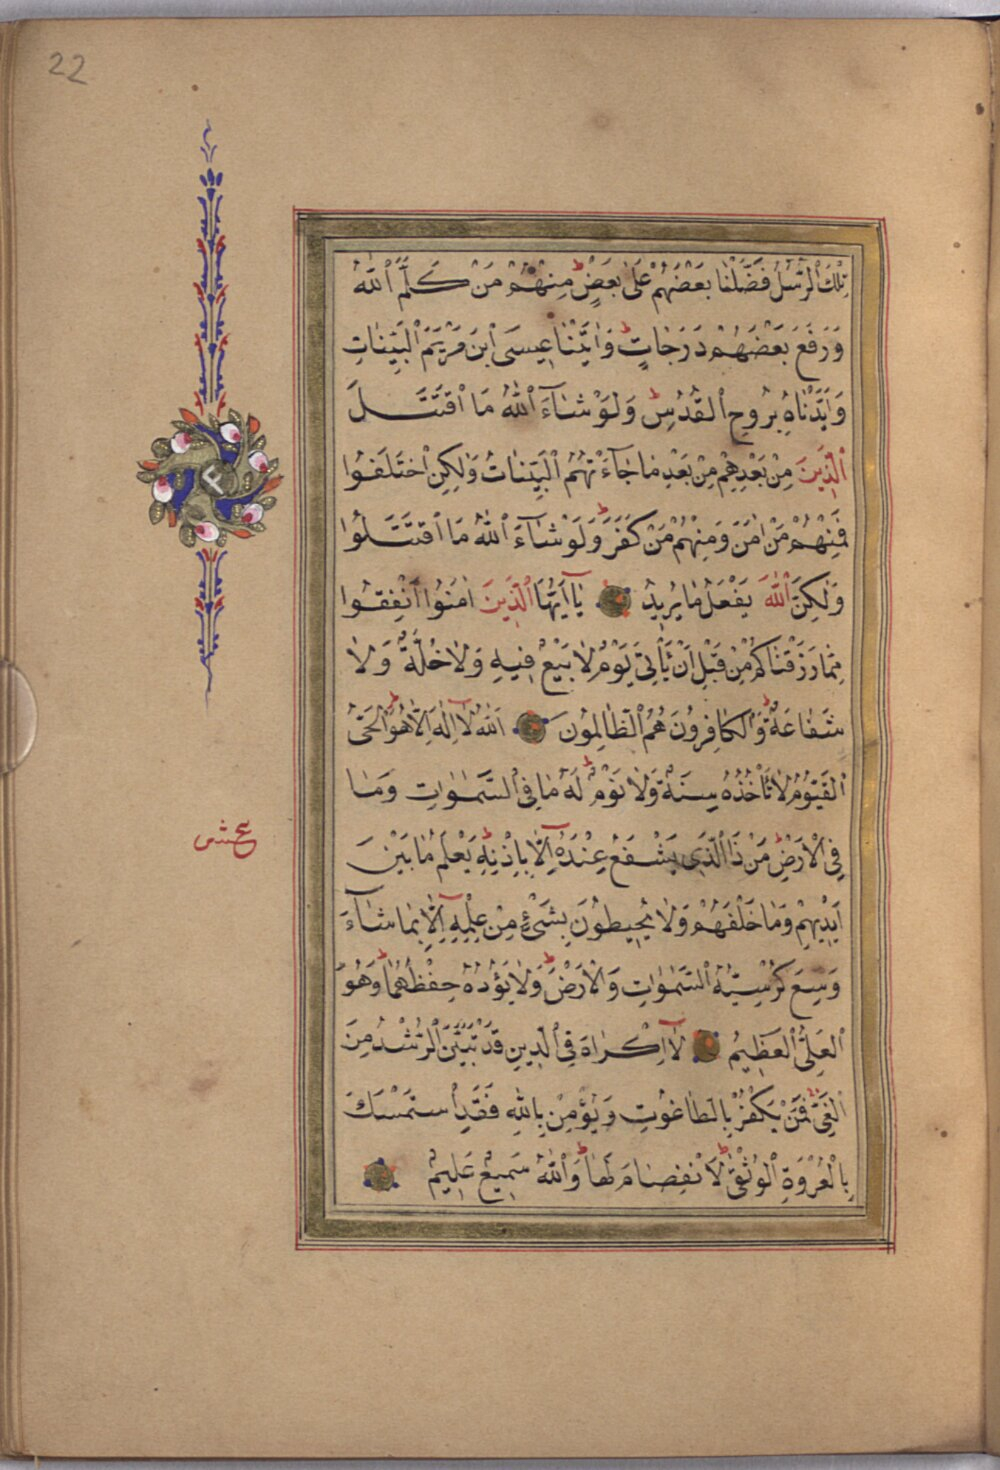 22
تِلْكَ الرُّسُلُ فَضَّلْنَا بَعْضَهُمْ عَلٰى بَعْضٍ مِنْهُمْ مَنْ كَلَّمَ اللّٰهُ
وَرَفَعَ بَعْضَهُمْ دَرَجَاتٍ وَاٰتَيْنَا عِيسَى ابْنَ مَرْيَمَ الْبَيِّنَاتِ
وَاَيَّدْنَاهُ بِرُوحِ الْقُدُسِ وَلَوْ شَٓاءَ اللّٰهُ مَا اقْتَتَلَ
الَّذِينَ مِنْ بَعْدِهِمْ مِنْ بَعْدِ مَا جَٓاءَتْهُمُ الْبَيِّنَاتُ وَلٰكِنِ اخْتَلَفُوا
فَمِنْهُمْ مَنْ اٰمَنَ وَمِنْهُمْ مَنْ كَفَرَ وَلَوْ شَٓاءَ اللّٰهُ مَا اقْتَتَلُوا
وَلٰكِنَّ اللّٰهَ يَفْعَلُ مَا يُرِيدُ يَٓا اَيُّهَا الَّذِينَ اٰمَنُوا اَنْفِقُوا
مِمَّا رَزَقْنَاكُمْ مِنْ قَبْلِ اَنْ يَأْتِيَ يَوْمٌ لَا بَيْعٌ فِيهِ وَلَا خُلَّةٌ وَلَا
شَفَاعَةٌ وَالْكَافِرُونَ هُمُ الظَّالِمُونَ اَللّٰهُ لَٓا اِلٰهَ اِلَّا هُوَ الْحَيُّ
الْقَيُّومُ لَا تَأْخُذُهُ سِنَةٌ وَلَا نَوْمٌ لَهُ مَا فِي السَّمٰوَاتِ وَمَا
فِي الْاَرْضِ مَنْ ذَا الَّذِي يَشْفَعُ عِنْدَهُٓ اِلَّا بِاِذْنِهِ يَعْلَمُ مَا بَيْنَ
اَيْدِيهِمْ وَمَا خَلْفَهُمْ وَلَا يُحِيطُونَ بِشَيْءٍ مِنْ عِلْمِهِٓ اِلَّا بِمَا شَٓاءَ
وَسِعَ كُرْسِيُّهُ السَّمٰوَاتِ وَالْاَرْضَ وَلَا يَؤُدُهُ حِفْظُهُمَا وَهُوَ
الْعَلِيُّ الْعَظِيمُ لَٓا اِكْرَاهَ فِي الدِّينِ قَدْ تَبَيَّنَ الرُّشْدُ مِنَ
الْغَيِّ فَمَنْ يَكْفُرْ بِالطَّاغُوتِ وَيُؤْمِنْ بِاللّٰهِ فَقَدِ اسْتَمْسَكَ
بِالْعُرْوَةِ الْوُثْقٰى لَا انْفِصَامَ لَهَا وَاللّٰهُ سَمِيعٌ عَلِيمٌ